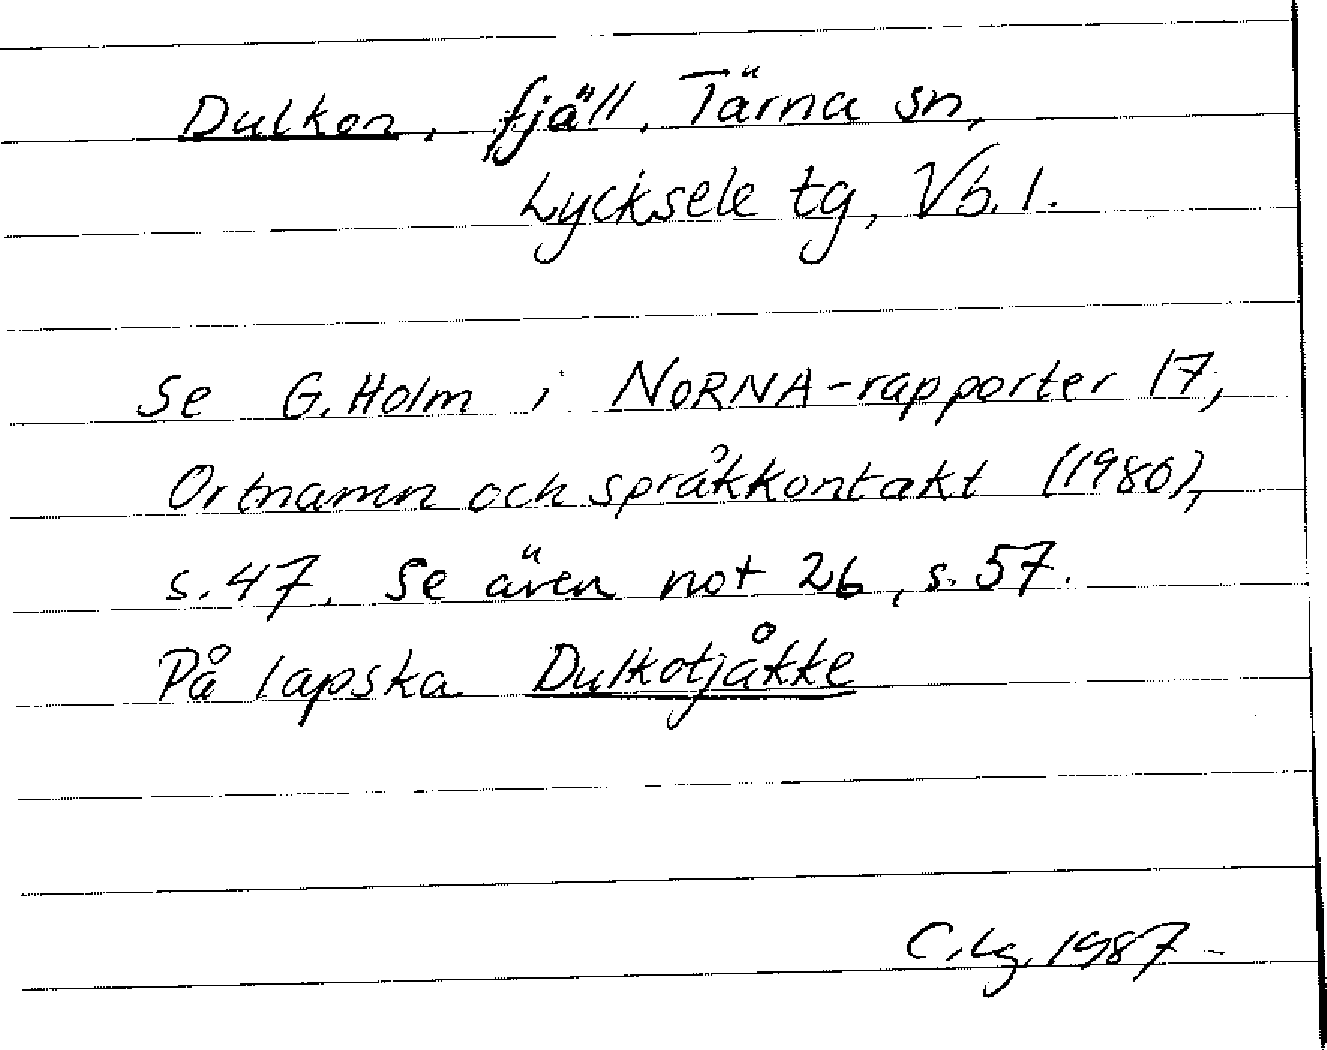 Dulkon, fjäll, Tärna sn,
Lycksele tg, Vb. l.
Se G. Holm i NORNA-rapporter 17,
Ortnamn och språkkontakt (1980),
s. 47. Se även not 26, s. 57.
På lapska Dulkotjåkke
C. Lg. 1987